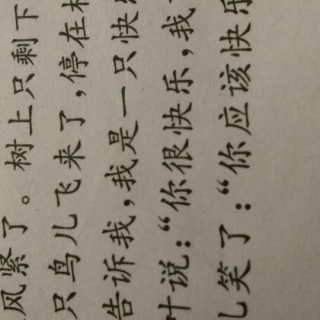 风紧了。树上只剩下
只鸟儿飞来了,停在
告诉我,我是一只快
叶说:“你很快乐,我
笑了:“你应该快乐